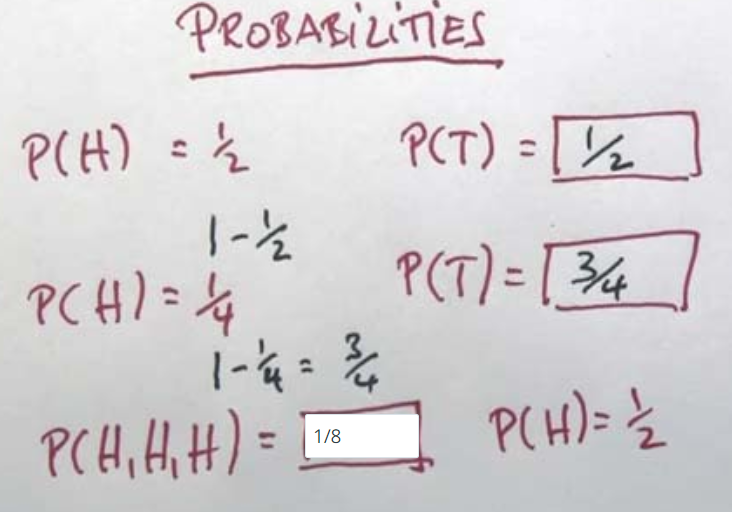 PROBABILITIES
P(H) = 1/2 P(T) = 1/2
1-1/2
P(H) = 1/4 P(T) = 3/4
1-1/4 = 3/4
P(H,H,H) = 1/8 P(H) = 1/2